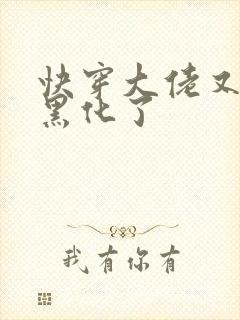 快穿大佬又
黑化了
我有你有